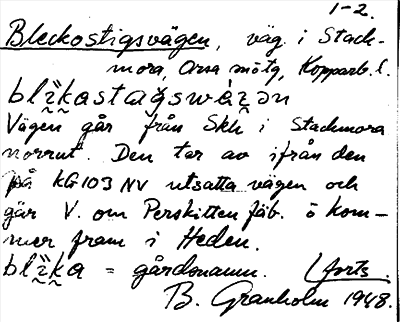 1-2.
Bleckostigsvägen, väg i Stack-
mora, Orsa sn, Kopparb. l.
Vägen går från Skh i Stackmora
norrut. Den tar av ifrån den
på KG103 NV utsatta vägen och
går V. om Perskitten fäb. o kom-
mer fram i Heden.
= gårdsnamn. (forts.
B. Granholm 1948.